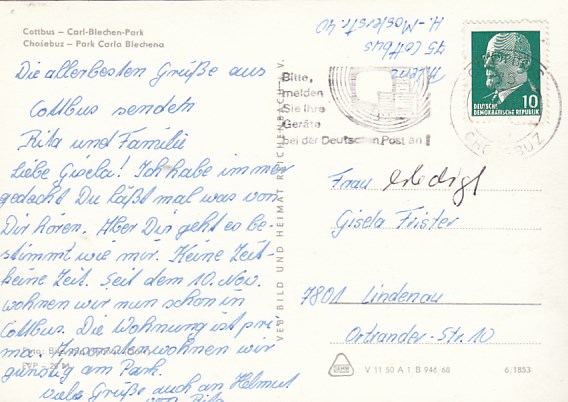 Cottbus – Carl-Blechen-Park
Chośebuz – Park Carla Blechena
Die allerbesten Grüße aus
Cottbus senden
Rita und Familie
Liebe Gisela! Ich habe immer
gedacht Du läßt mal was von
Dir hören. Aber Dir geht es be-
stimmt wie mir. Keine Zeit-
keine Zeit. Seit dem 10. Nov.
wohnen wir nun schon in
Cottbus. Die Wohnung ist pri-
ma. Ansonsten wohnen wir
günstig am Park.
viele Grüße auch an Helmut
von Rita
VEB BILD UND HEIMAT REICHENBACH i. V.
75 Cottbus
Bitte,
melden
Sie Ihre
Geräte
bei der Deutschen Post an!
DEUTSCHE
DEMOKRATISCHE REPUBLIK
10
Frau erledigt
Gisela Frister
7801 Lindenau
Ortrander-Str. 10
V 11 50 A 1 B 946/68
6/1853